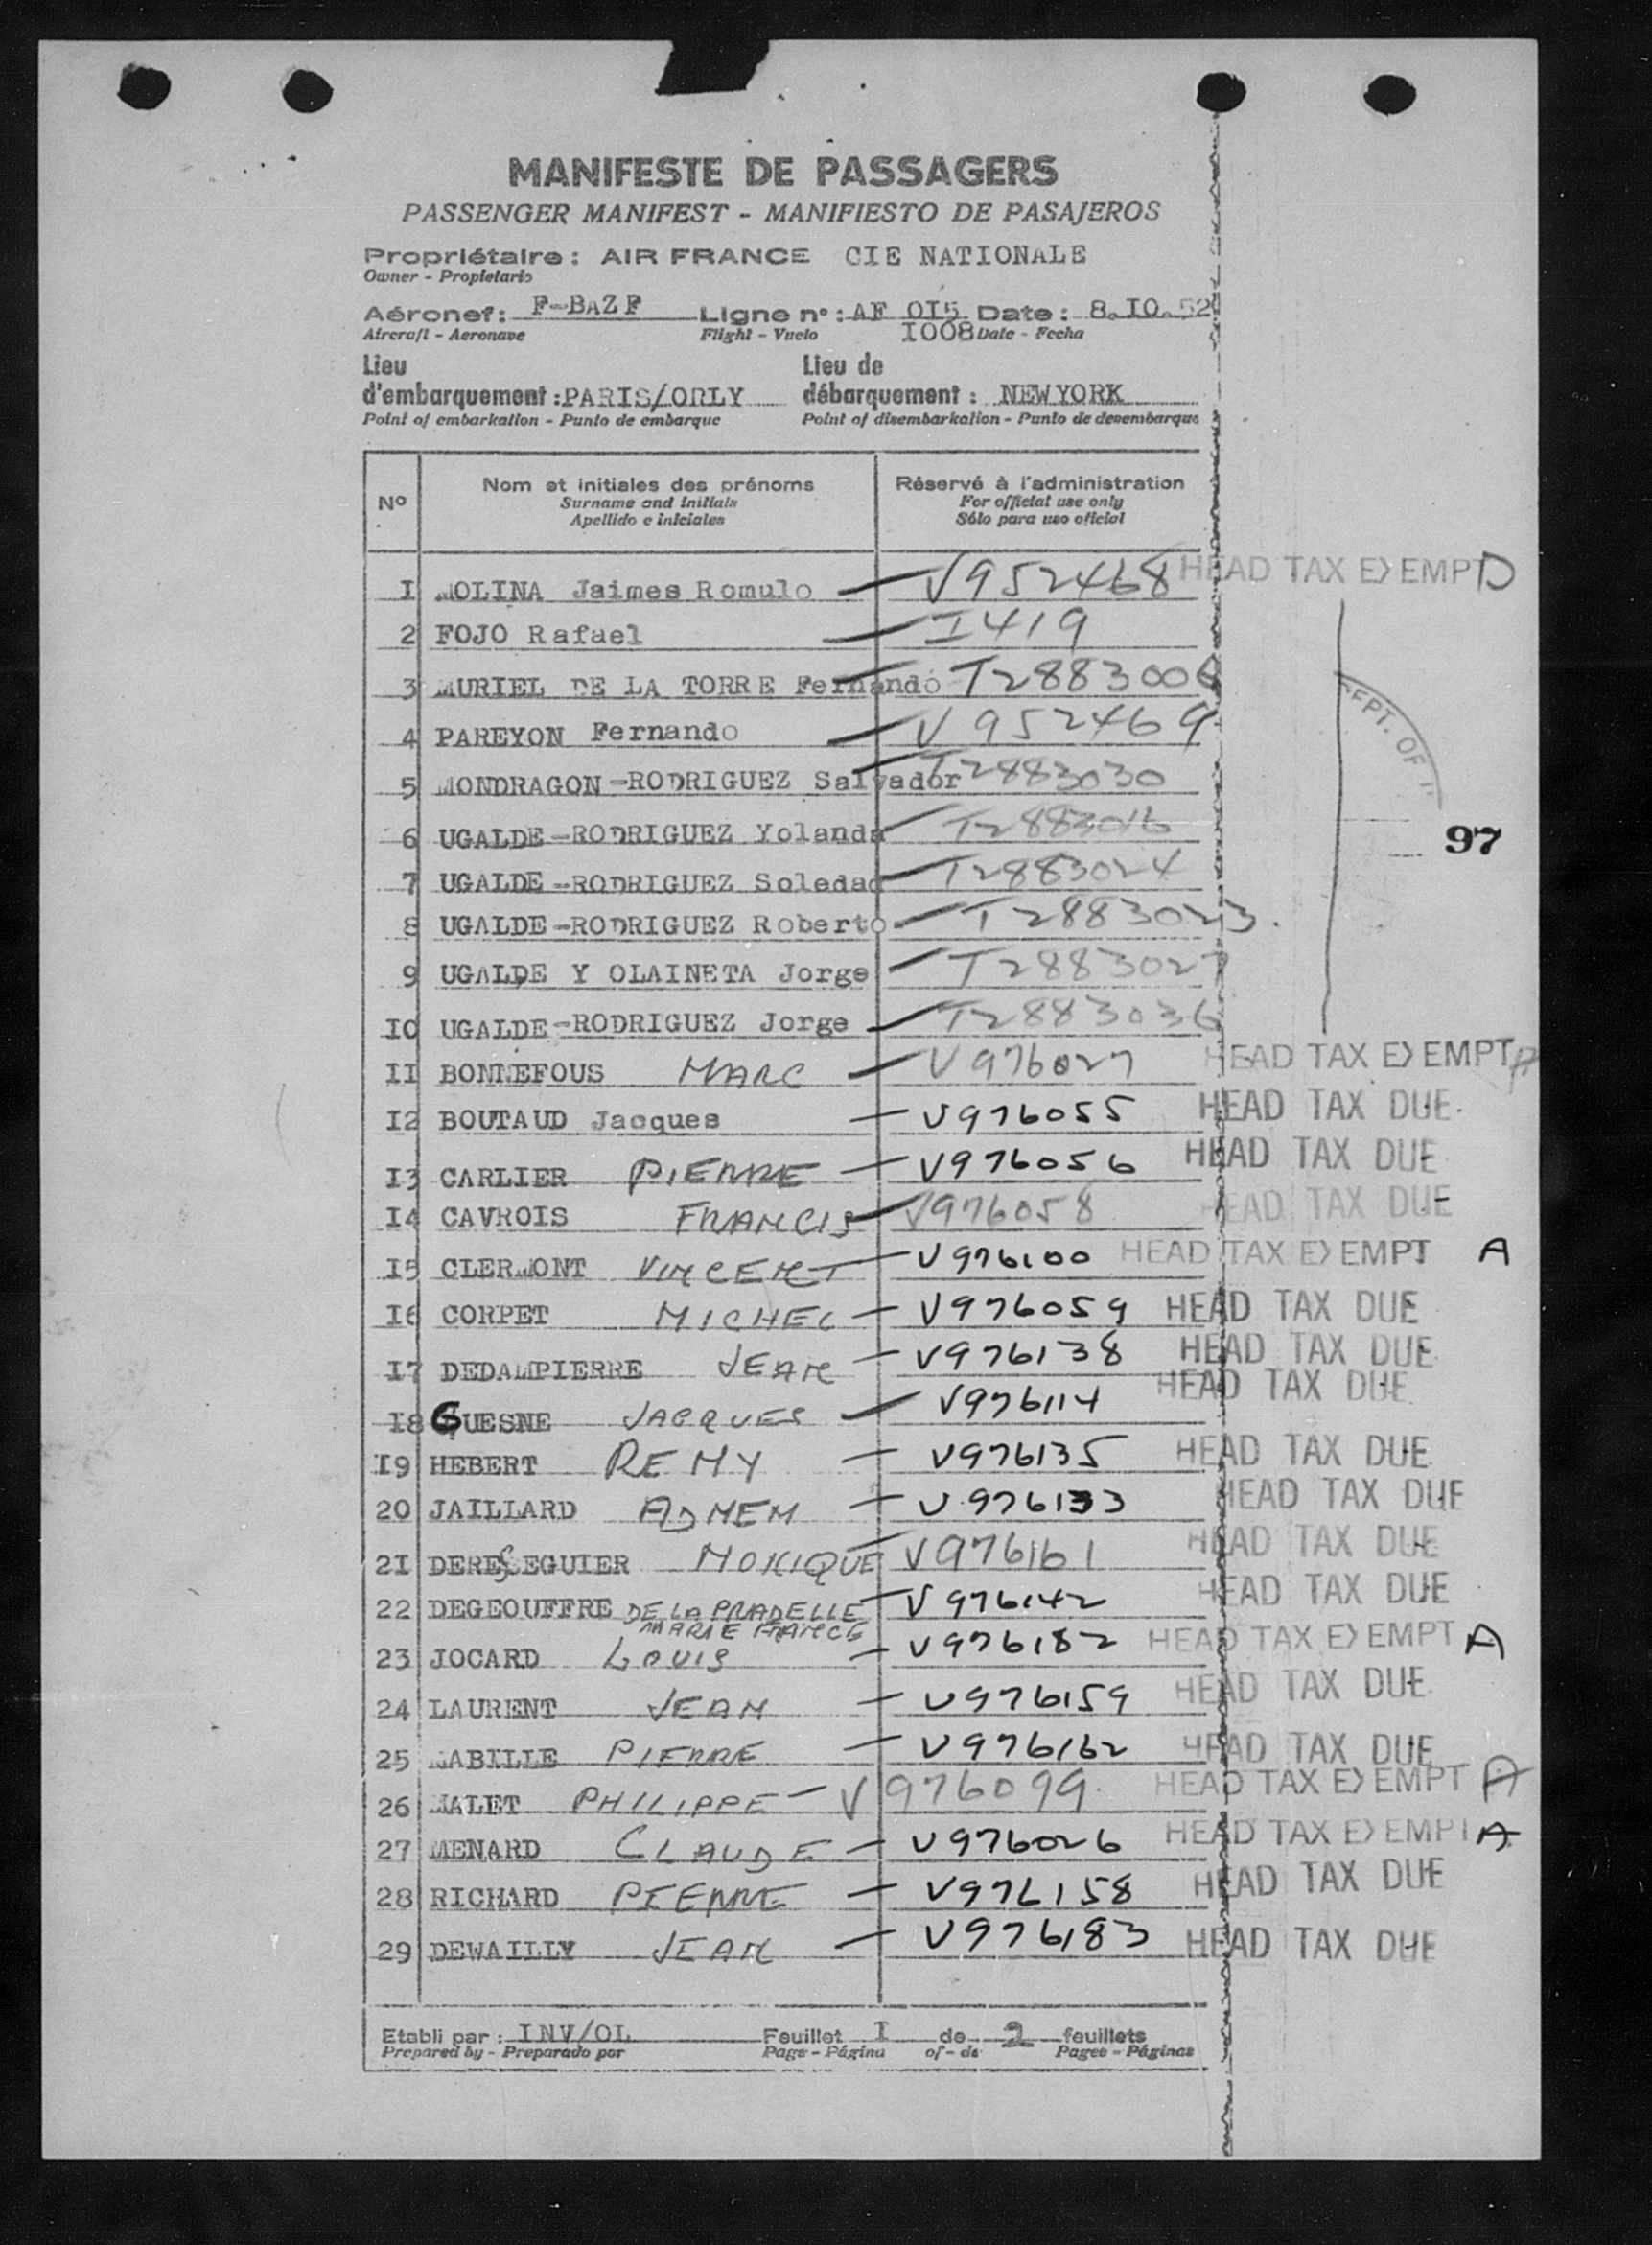 MANIFESTE DE PASSAGERS
PASSENGER MANIFEST - MANIFIESTO DE PASAJEROS
Propriétaire : AIR FRANCE CIE NATIONALE
Owner - Propietario
Aéronef : F-BAZF Ligne n° : AF OI5 Date : 8.IO.52
Aircraft - Aeronave Flight - Vuelo I008 Date - Fecha
Lieu Lieu de
d'embarquement : PARIS/ORLY débarquement : NEWYORK
Point of embarkation - Punto de embarque Point of disembarkation - Punto de desembarque
Nº Nom et initiales des prénoms Réservé à l'administration
Surname and initials For official use only
Apellido e iniciales Sólo para uso oficial
I MOLINA Jaimes Romulo V952468 HEAD TAX EXEMPT
2 FOJO Rafael I419
3 MURIEL DE LA TORRE Fernando T2883006
4 PAREYON Fernando V952469
DEPT. OF
5 MONDRAGON-RODRIGUEZ Salvador T2883030
6 UGALDE-RODRIGUEZ Yolanda T2883016
97
7 UGALDE-RODRIGUEZ Soledad T2883024
8 UGALDE-RODRIGUEZ Roberto T2883023
9 UGALDE Y OLAINETA Jorge T2883027
IO UGALDE-RODRIGUEZ Jorge T2883036
II BONNEFOUS MARC V976027 HEAD TAX EXEMPT A
I2 BOUTAUD Jacques V976055 HEAD TAX DUE
I3 CARLIER PIERRE V976056 HEAD TAX DUE
I4 CAVROIS FRANCIS V976058 HEAD TAX DUE
I5 CLERMONT VINCENT V976100 HEAD TAX EXEMPT A
I6 CORPET MICHEL V976059 HEAD TAX DUE
I7 DEDAMPIERRE JEAN V976138 HEAD TAX DUE
I8 GUESNE JACQUES V976114 HEAD TAX DUE
I9 HEBERT REMY V976135 HEAD TAX DUE
20 JAILLARD V976133 HEAD TAX DUE
2I DERESSEGUIER MONIQUE V976161 HEAD TAX DUE
22 DEGEOUFFRE DE LA PRADELLE V976142 HEAD TAX DUE
MARIE FRANCE
23 JOCARD LOUIS V976182 HEAD TAX EXEMPT A
24 LAURENT JEAN V976159 HEAD TAX DUE
25 MABILLE PIERRE V976162 HEAD TAX DUE
26 MALET PHILIPPE V976099 HEAD TAX EXEMPT A
27 MENARD CLAUDE V976026 HEAD TAX EXEMPT A
28 RICHARD PIERRE V976158 HEAD TAX DUE
29 DEWAILLY JEAN V976183 HEAD TAX DUE
Etabli par : INV/OL Feuillet I de 2 feuillets
Prepared by - Preparado por Page - Página of - de Pages - Páginas